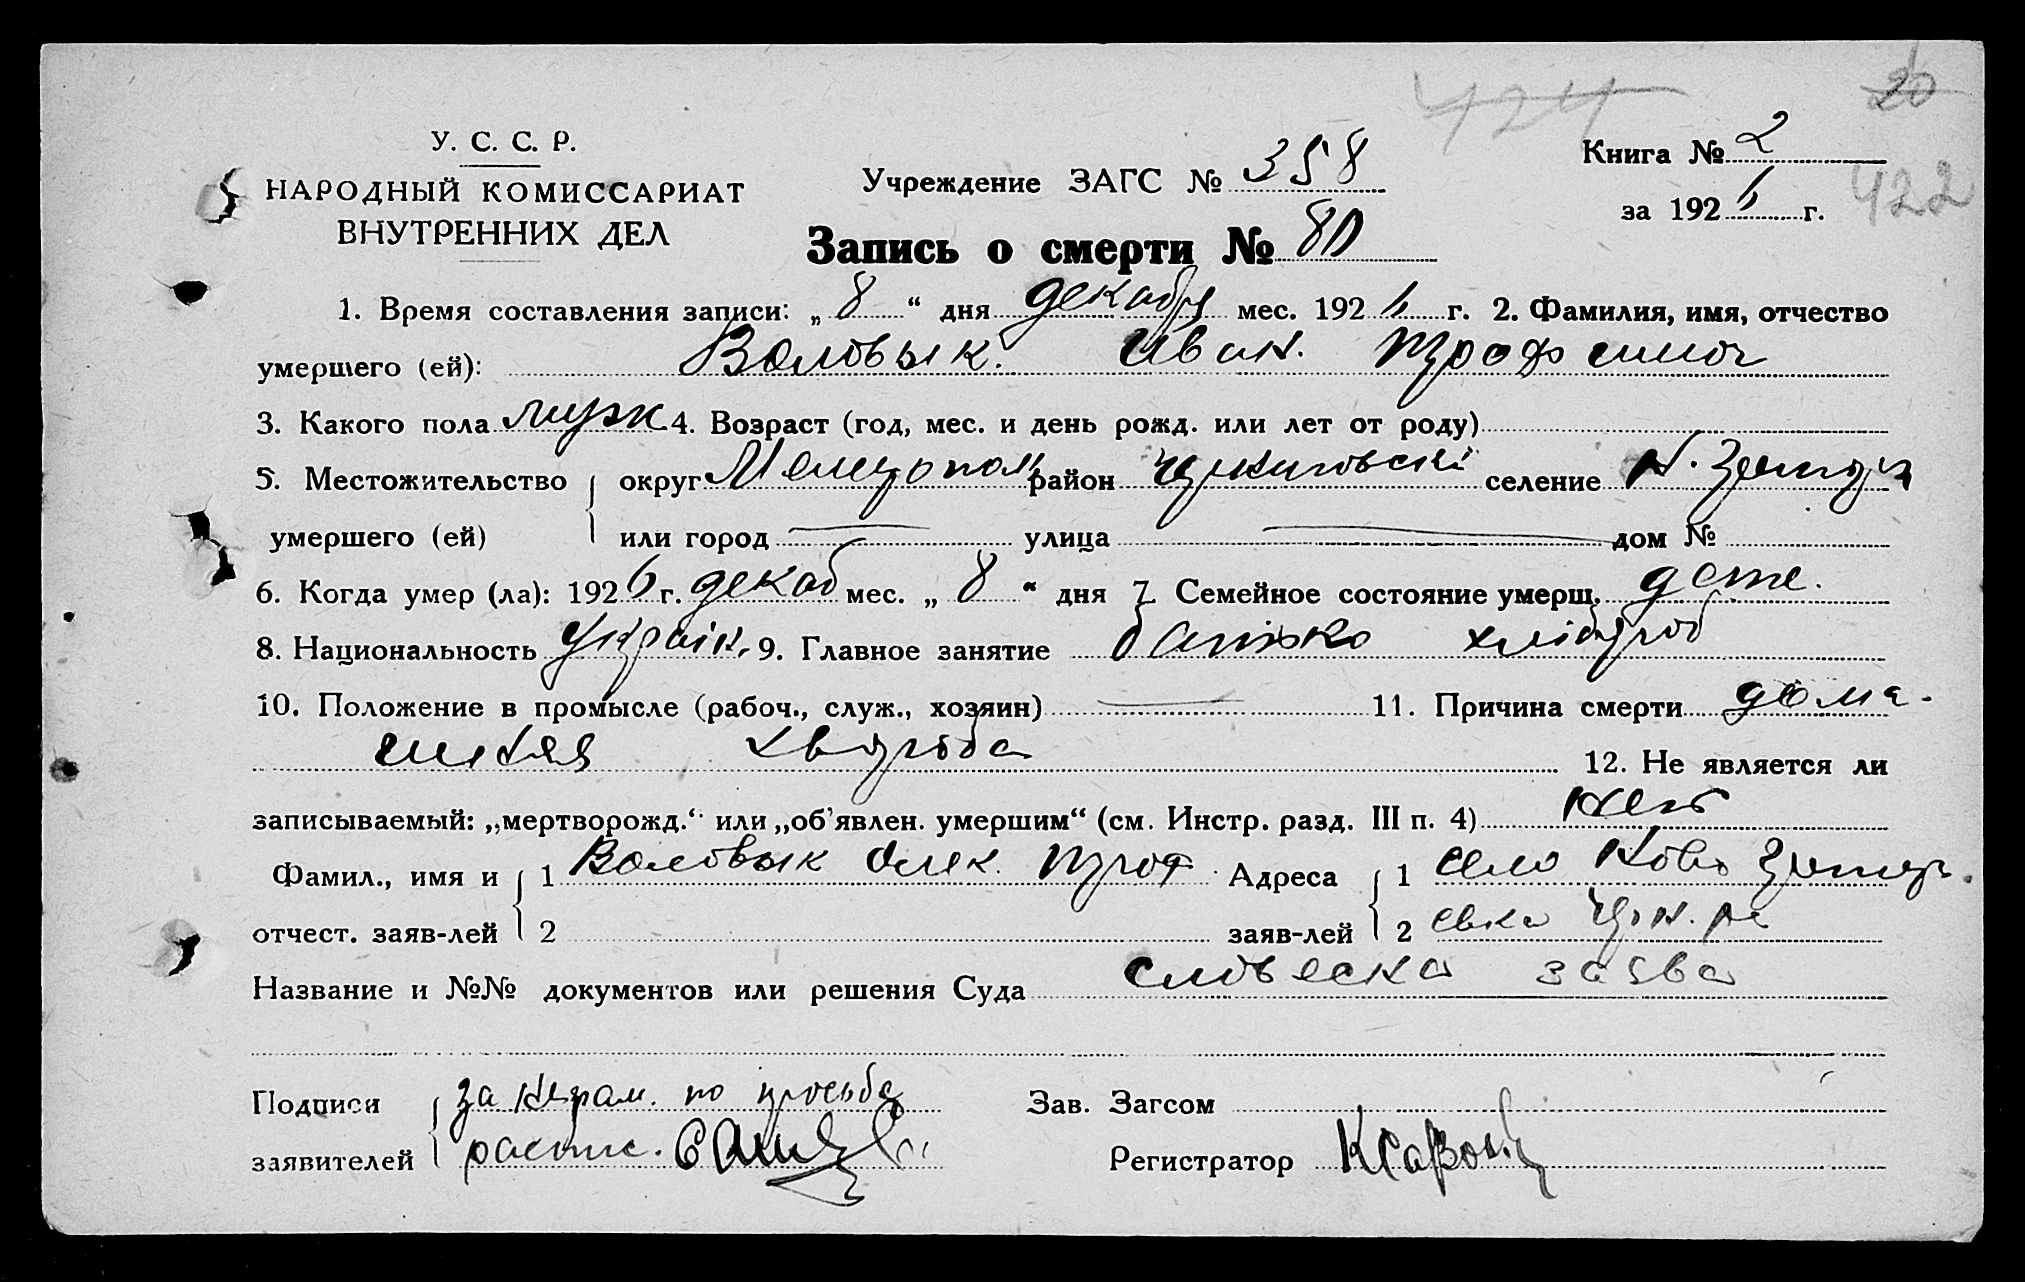 424 20
У. С. С. Р.
НАРОДНЫЙ КОМИССАРИАТ
ВНУТРЕННИХ ДЕЛ
Учреждение ЗАГС № 358
Книга № 2
за 1926 г. 422
Запись о смерти № 80
1. Время составления записи: „ 8 “ дня декабр мес. 1926 г. 2. Фамилия, имя, отчество
умершего (ей): Воловык. Иван. Трофимоч
3. Какого пола муж 4. Возраст (год, мес. и день рожд. или лет от роду)
5. Местожительство округ Мелитопол район селение Н.
умершего (ей) или город — улица — дом №
6. Когда умер (ла): 1926 г. декаб мес. „ 8 “ дня 7. Семейное состояние умерш. дети.
8. Национальность Україн. 9. Главное занятие батько хлібороб
10. Положение в промысле (рабоч., служ., хозяин) — 11. Причина смерти дома-
шняя хвороба 12. Не является ли
записываемый: „мертворожд.“ или „об’явлен. умершим“ (см. Инстр. разд. III п. 4) нет
Фамил., имя и 1 Воловык Олек. Троф Адреса 1 село Ново
отчест. заяв-лей 2 заяв-лей 2 евка
Название и №№ документов или решения Суда словеска заява
Подписи за неграм. по просьбе Зав. Загсом
заявителей распис. Регистратор